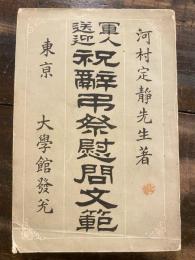 河村定靜先生著
軍人
送迎
祝辭弔祭慰問文範
東京 大學館發兌